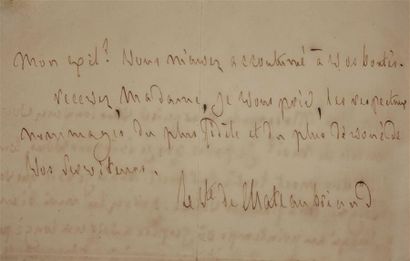 mon exil? Vous m'avez accoutumé à vos bontés.
recevez, Madame, je vous prie, les respectueux
hommages du plus fidèle et du plus dévoué de
vos serviteurs.
le Vte de Chateaubriand